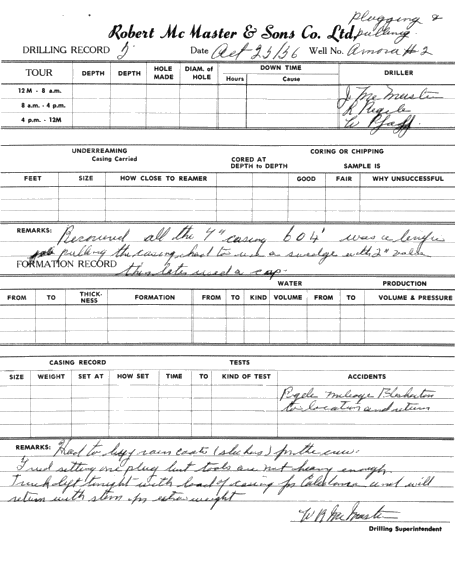 Plugging &
Robert Mc Master & Sons Co. Ltd. pulling
DRILLING RECORD 5 Date Oct 25/56 Well No. #2
TOUR DEPTH DEPTH HOLE MADE DIAM. of HOLE DOWN TIME DRILLER
Hours Cause
12 M - 8 a.m. J McMaster
8 a.m. - 4 p.m. R
4 p.m. - 12M W Pfaff
UNDERREAMING CORING OR CHIPPING
Casing Carried CORED AT DEPTH to DEPTH SAMPLE IS
FEET SIZE HOW CLOSE TO REAMER GOOD FAIR WHY UNSUCCESSFUL
REMARKS: Recovered all the 7" casing 604' was a
pulling the casing had to use a swedge with 2"
FORMATION RECORD then later used a cap.
WATER PRODUCTION
FROM TO THICK-NESS FORMATION FROM TO KIND VOLUME FROM TO VOLUME & PRESSURE
CASING RECORD TESTS
SIZE WEIGHT SET AT HOW SET TIME TO KIND OF TEST ACCIDENTS
mileage
to location and return
REMARKS: Had to buy rain coats (slickers) for the crew.
Tried setting one plug but tools are not heavy enough.
Truck left tonight with load of casing for Caledonia and will
return with stem for extra weight
W B McMaster
Drilling Superintendent